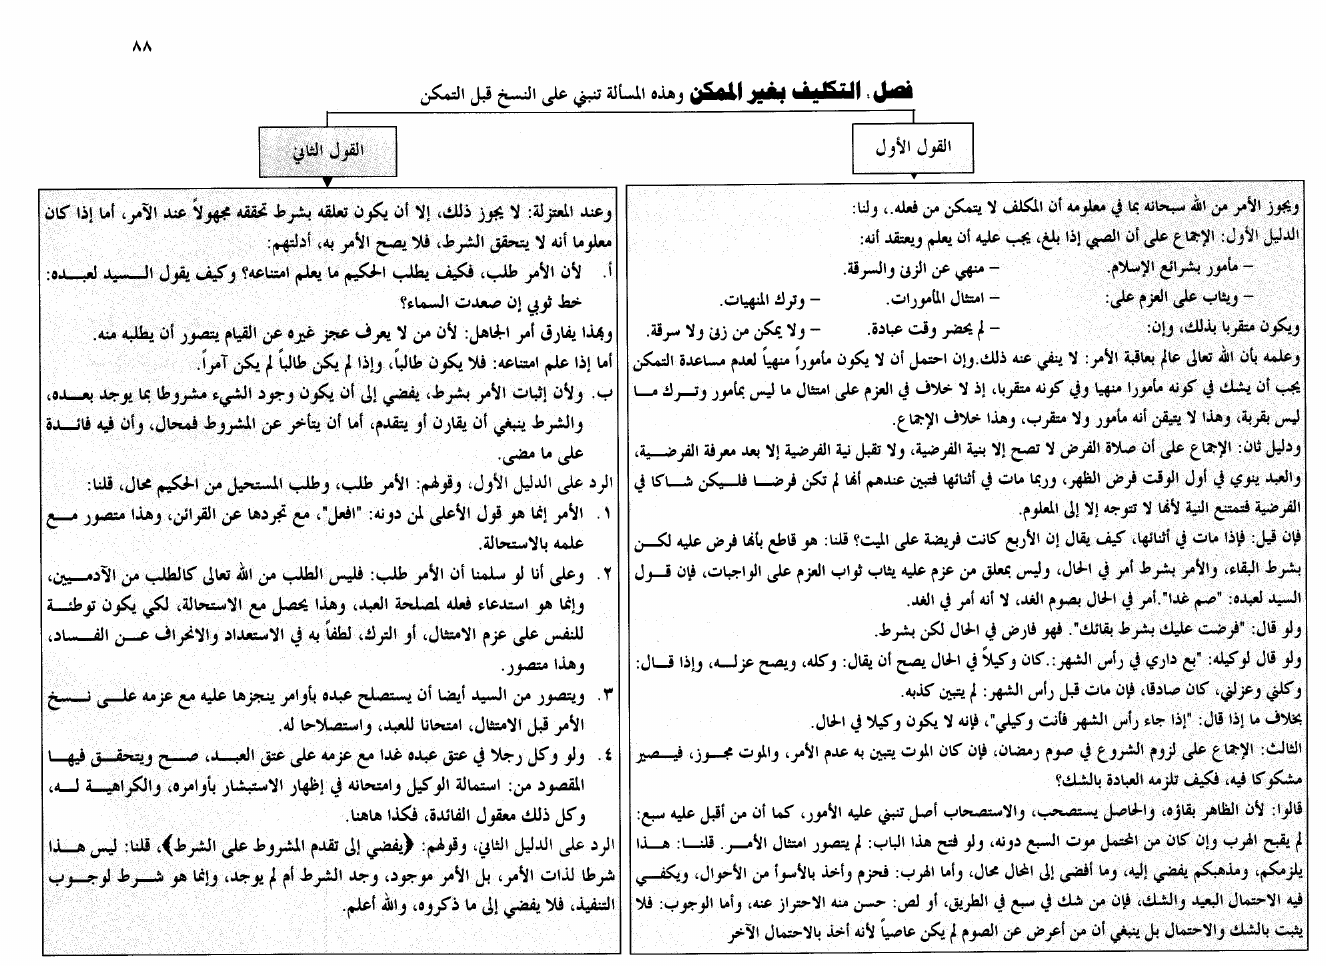 ٨٨
فصل: التكليف بغير الممكن وهذه المسألة تنبني على النسخ قبل التمكن
القول الأول
ويجوز الأمر من الله سبحانه بما في معلومه أن المكلف لا يتمكن من فعله.، ولنا:
الدليل الأول: الإجماع على أن الصبي إذا بلغ، يجب عليه أن يعلم ويعتقد أنه:
– مأمور بشرائع الإسلام. – منهي عن الزنى والسرقة.
– ويثاب على العزم على: – امتثال المأمورات. – وترك المنهيات.
ويكون متقربا بذلك، وإن: – لم يحضر وقت عبادة. – ولا يمكن من زنى ولا سرقة.
وعلمه بأن الله تعالى عالم بعاقبة الأمر: لا ينفي عنه ذلك.وإن احتمل أن لا يكون مأموراً منهياً لعدم مساعدة التمكن
يجب أن يشك في كونه مأمورا منهيا وفي كونه متقربا، إذ لا خلاف في العزم على امتثال ما ليس بمأمور وترك ما
ليس بقربة، وهذا لا يتيقن أنه مأمور ولا متقرب، وهذا خلاف الإجماع.
ودليل ثان: الإجماع على أن صلاة الفرض لا تصح إلا بنية الفرضية، ولا تقبل نية الفرضية إلا بعد معرفة الفرضية،
والعبد ينوي في أول الوقت فرض الظهر، وربما مات في أثنائها فتبين عندهم أنها لم تكن فرضا فليكن شاكا في
الفرضية فتمتنع النية لأنها لا تتوجه إلا إلى المعلوم.
فإن قيل: فإذا مات في أثنائها، كيف يقال إن الأربع كانت فريضة على الميت؟ قلنا: هو قاطع بأنها فرض عليه لكن
بشرط البقاء، والأمر بشرط أمر في الحال، وليس بمعلق من عزم عليه يثاب ثواب العزم على الواجبات، فإن قول
السيد لعبده: "صم غدا".أمر في الحال بصوم الغد، لا أنه أمر في الغد.
ولو قال: "فرضت عليك بشرط بقائك". فهو فارض في الحال لكن بشرط.
ولو قال لوكيله: "بع داري في رأس الشهر:.كان وكيلاً في الحال يصح أن يقال: وكله، ويصح عزله، وإذا قال:
وكلني وعزلني، كان صادقا، فإن مات قبل رأس الشهر: لم يتبين كذبه.
بخلاف ما إذا قال: "إذا جاء رأس الشهر فأنت وكيلي"، فإنه لا يكون وكيلا في الحال.
الثالث: الإجماع على لزوم الشروع في صوم رمضان، فإن كان الموت يتبين به عدم الأمر، والموت مجوز، فيصير
مشكوكا فيه، فكيف تلزمه العبادة بالشك؟
قالوا: لأن الظاهر بقاؤه، والحاصل يستصحب، والاستصحاب أصل تنبني عليه الأمور، كما أن من أقبل عليه سبع:
لم يقبح الهرب وإن كان من المحتمل موت السبع دونه، ولو فتح هذا الباب: لم يتصور امتثال الأمر. قلنا: هذا
يلزمكم، ومذهبكم يفضي إليه، وما أفضى إلى المحال محال، وأما الهرب: فحزم وأخذ بالأسوأ من الأحوال، ويكفي
فيه الاحتمال البعيد والشك، فإن من شك في سبع في الطريق، أو لص: حسن منه الاحتراز عنه، وأما الوجوب: فلا
يثبت بالشك والاحتمال بل ينبغي أن من أعرض عن الصوم لم يكن عاصياً لأنه أخذ بالاحتمال الآخر
القول الثاني
وعند المعتزلة: لا يجوز ذلك، إلا أن يكون تعلقه بشرط تحققه مجهولاً عند الآمر، أما إذا كان
معلوما أنه لا يتحقق الشرط، فلا يصح الأمر به، أدلتهم:
أ. لأن الأمر طلب، فكيف يطلب الحكيم ما يعلم امتناعه؟ وكيف يقول السيد لعبده:
خط ثوبي إن صعدت السماء؟
وبهذا يفارق أمر الجاهل: لأن من لا يعرف عجز غيره عن القيام يتصور أن يطلبه منه.
أما إذا علم امتناعه: فلا يكون طالباً، وإذا لم يكن طالباً لم يكن آمراً.
ب. ولأن إثبات الأمر بشرط، يفضي إلى أن يكون وجود الشيء مشروطا بما يوجد بعده،
والشرط ينبغي أن يقارن أو يتقدم، أما أن يتأخر عن المشروط فمحال، وأن فيه فائدة
على ما مضى.
الرد على الدليل الأول، وقولهم: الأمر طلب، وطلب المستحيل من الحكيم محال، قلنا:
١. الأمر إنما هو قول الأعلى لمن دونه: "افعل"، مع تجردها عن القرائن، وهذا متصور مع
علمه بالاستحالة.
٢. وعلى أنا لو سلمنا أن الأمر طلب: فليس الطلب من الله تعالى كالطلب من الآدميين،
وإنما هو استدعاء فعله لمصلحة العبد، وهذا يحصل مع الاستحالة، لكي يكون توطئة
للنفس على عزم الامتثال، أو الترك، لطفاً به في الاستعداد والانحراف عن الفساد،
وهذا متصور.
٣. ويتصور من السيد أيضا أن يستصلح عبده بأوامر ينجزها عليه مع عزمه على نسخ
الأمر قبل الامتثال، امتحانا للعبد، واستصلاحا له.
٤. ولو وكل رجلا في عتق عبده غدا مع عزمه على عتق العبد، صح ويتحقق فيها
المقصود من: استمالة الوكيل وامتحانه في إظهار الاستبشار بأوامره، والكراهية له،
وكل ذلك معقول الفائدة، فكذا هاهنا.
الرد على الدليل الثاني، وقولهم: (يفضي إلى تقدم المشروط على الشرط)، قلنا: ليس هذا
شرطا لذات الأمر، بل الأمر موجود، وجد الشرط أم لم يوجد، وإنما هو شرط لوجوب
التنفيذ، فلا يفضي إلى ما ذكروه، والله أعلم.